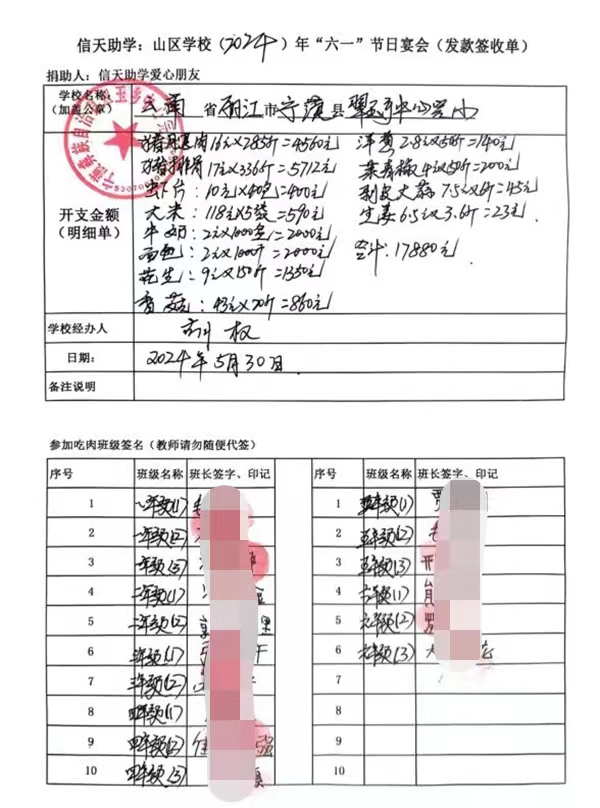 信天助学：山区学校（2024）年“六一”节日宴会（发款签收单）
捐助人：信天助学爱心朋友
学校名称：
（加盖公章）
云南 省 丽江 市 宁蒗 县
开支金额
（明细单）
16元×285斤=4560元 洋葱 2.8元×50斤=140元
17元×336斤=5712元 4元×50斤=200元
10元×40包=400元 7.5元×6斤=45元
大米：118元×5袋=590元 生姜 6.5元×3.6斤=23元
牛奶：2元×1000盒=2000元 合计：17880元
面包：2元×1000个=2000元
花生：9元×150斤=1350元
香菇：43元×20斤=860元
学校经办人
权
日期：
2024年5月30日
备注说明
参加吃肉班级签名（教师请勿随便代签）
序号 班级名称 班长签字、印记 序号 班级名称 班长签字、印记
1 一年级(1) 1 五年级(1)
2 一年级(2) 2 五年级(2)
3 一年级(3) 3 五年级(3)
4 二年级(1) 4 六年级(1)
5 二年级(2) 5 六年级(2)
6 三年级(1) 6 六年级(3)
7 三年级(2) 7
8 四年级(1) 8
9 四年级(2) 强 9
10 四年级(3) 10